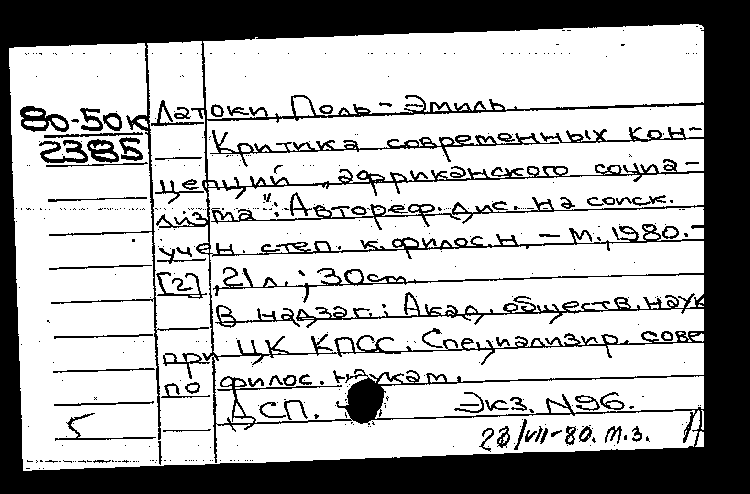 80-50к Латоки, Поль-Эмиль.
2385 Критика современных кон-
цепций „африканского социа-
лизма“: Автореф. дис. на соиск.
учен. степ. к.филос.н. – М., 1980.–
[2], 21 л.; 30 см.
В надзаг.: Акад. обществ. наук
при ЦК КПСС. Специализир. сове
по филос. наукам.
ДСП. – Экз. N96.
5
28/VII-80. т.з. А